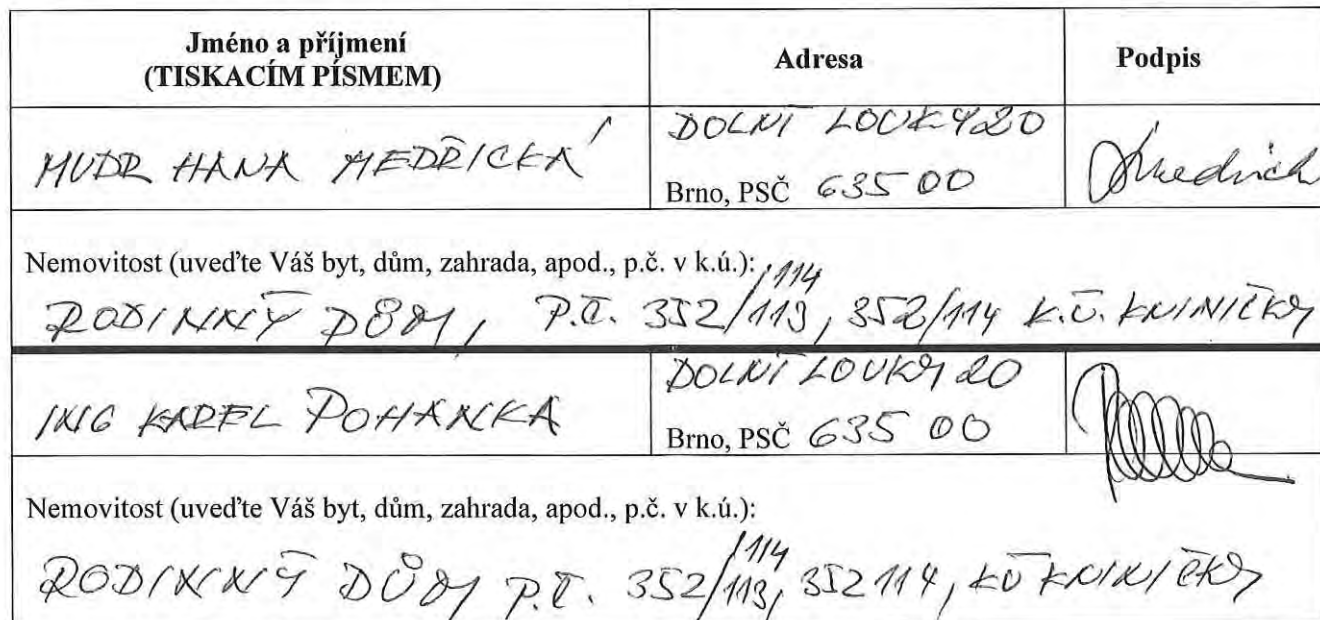 Jméno a příjmení
(TISKACÍM PÍSMEM)
Adresa
Podpis
MUDR HANA MEDŘICKÁ
DOLNÍ LOUKY 20
Brno, PSČ 635 00
Nemovitost (uveďte Váš byt, dům, zahrada, apod., p.č. v k.ú.):
/114
RODINNÝ DŮM, P.Č. 352/113, 352/114 K.Ú. KNINIČKY
ING KAREL POHANKA
DOLNÍ LOUKY 20
Brno, PSČ 635 00
Nemovitost (uveďte Váš byt, dům, zahrada, apod., p.č. v k.ú.):
/114
RODINNÝ DŮM P.Č. 352/113, 352 114, KÚ KNINIČKY